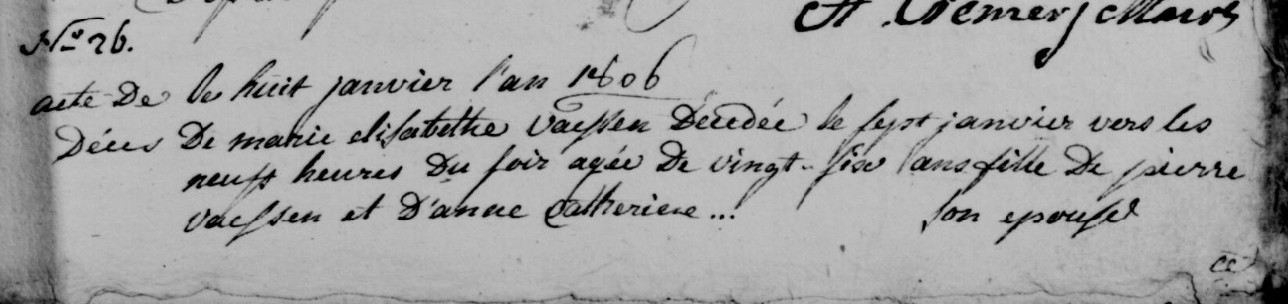 N.º 26.
acte De le huit janvier l'an 1806
Décès De marie elisabethe vaessen Decedée le sept janvier vers les
neuf heures Du soir agée De vingt-six ans fille De pierre
vaessen et D'anne Catheriene ... son epouse
cc